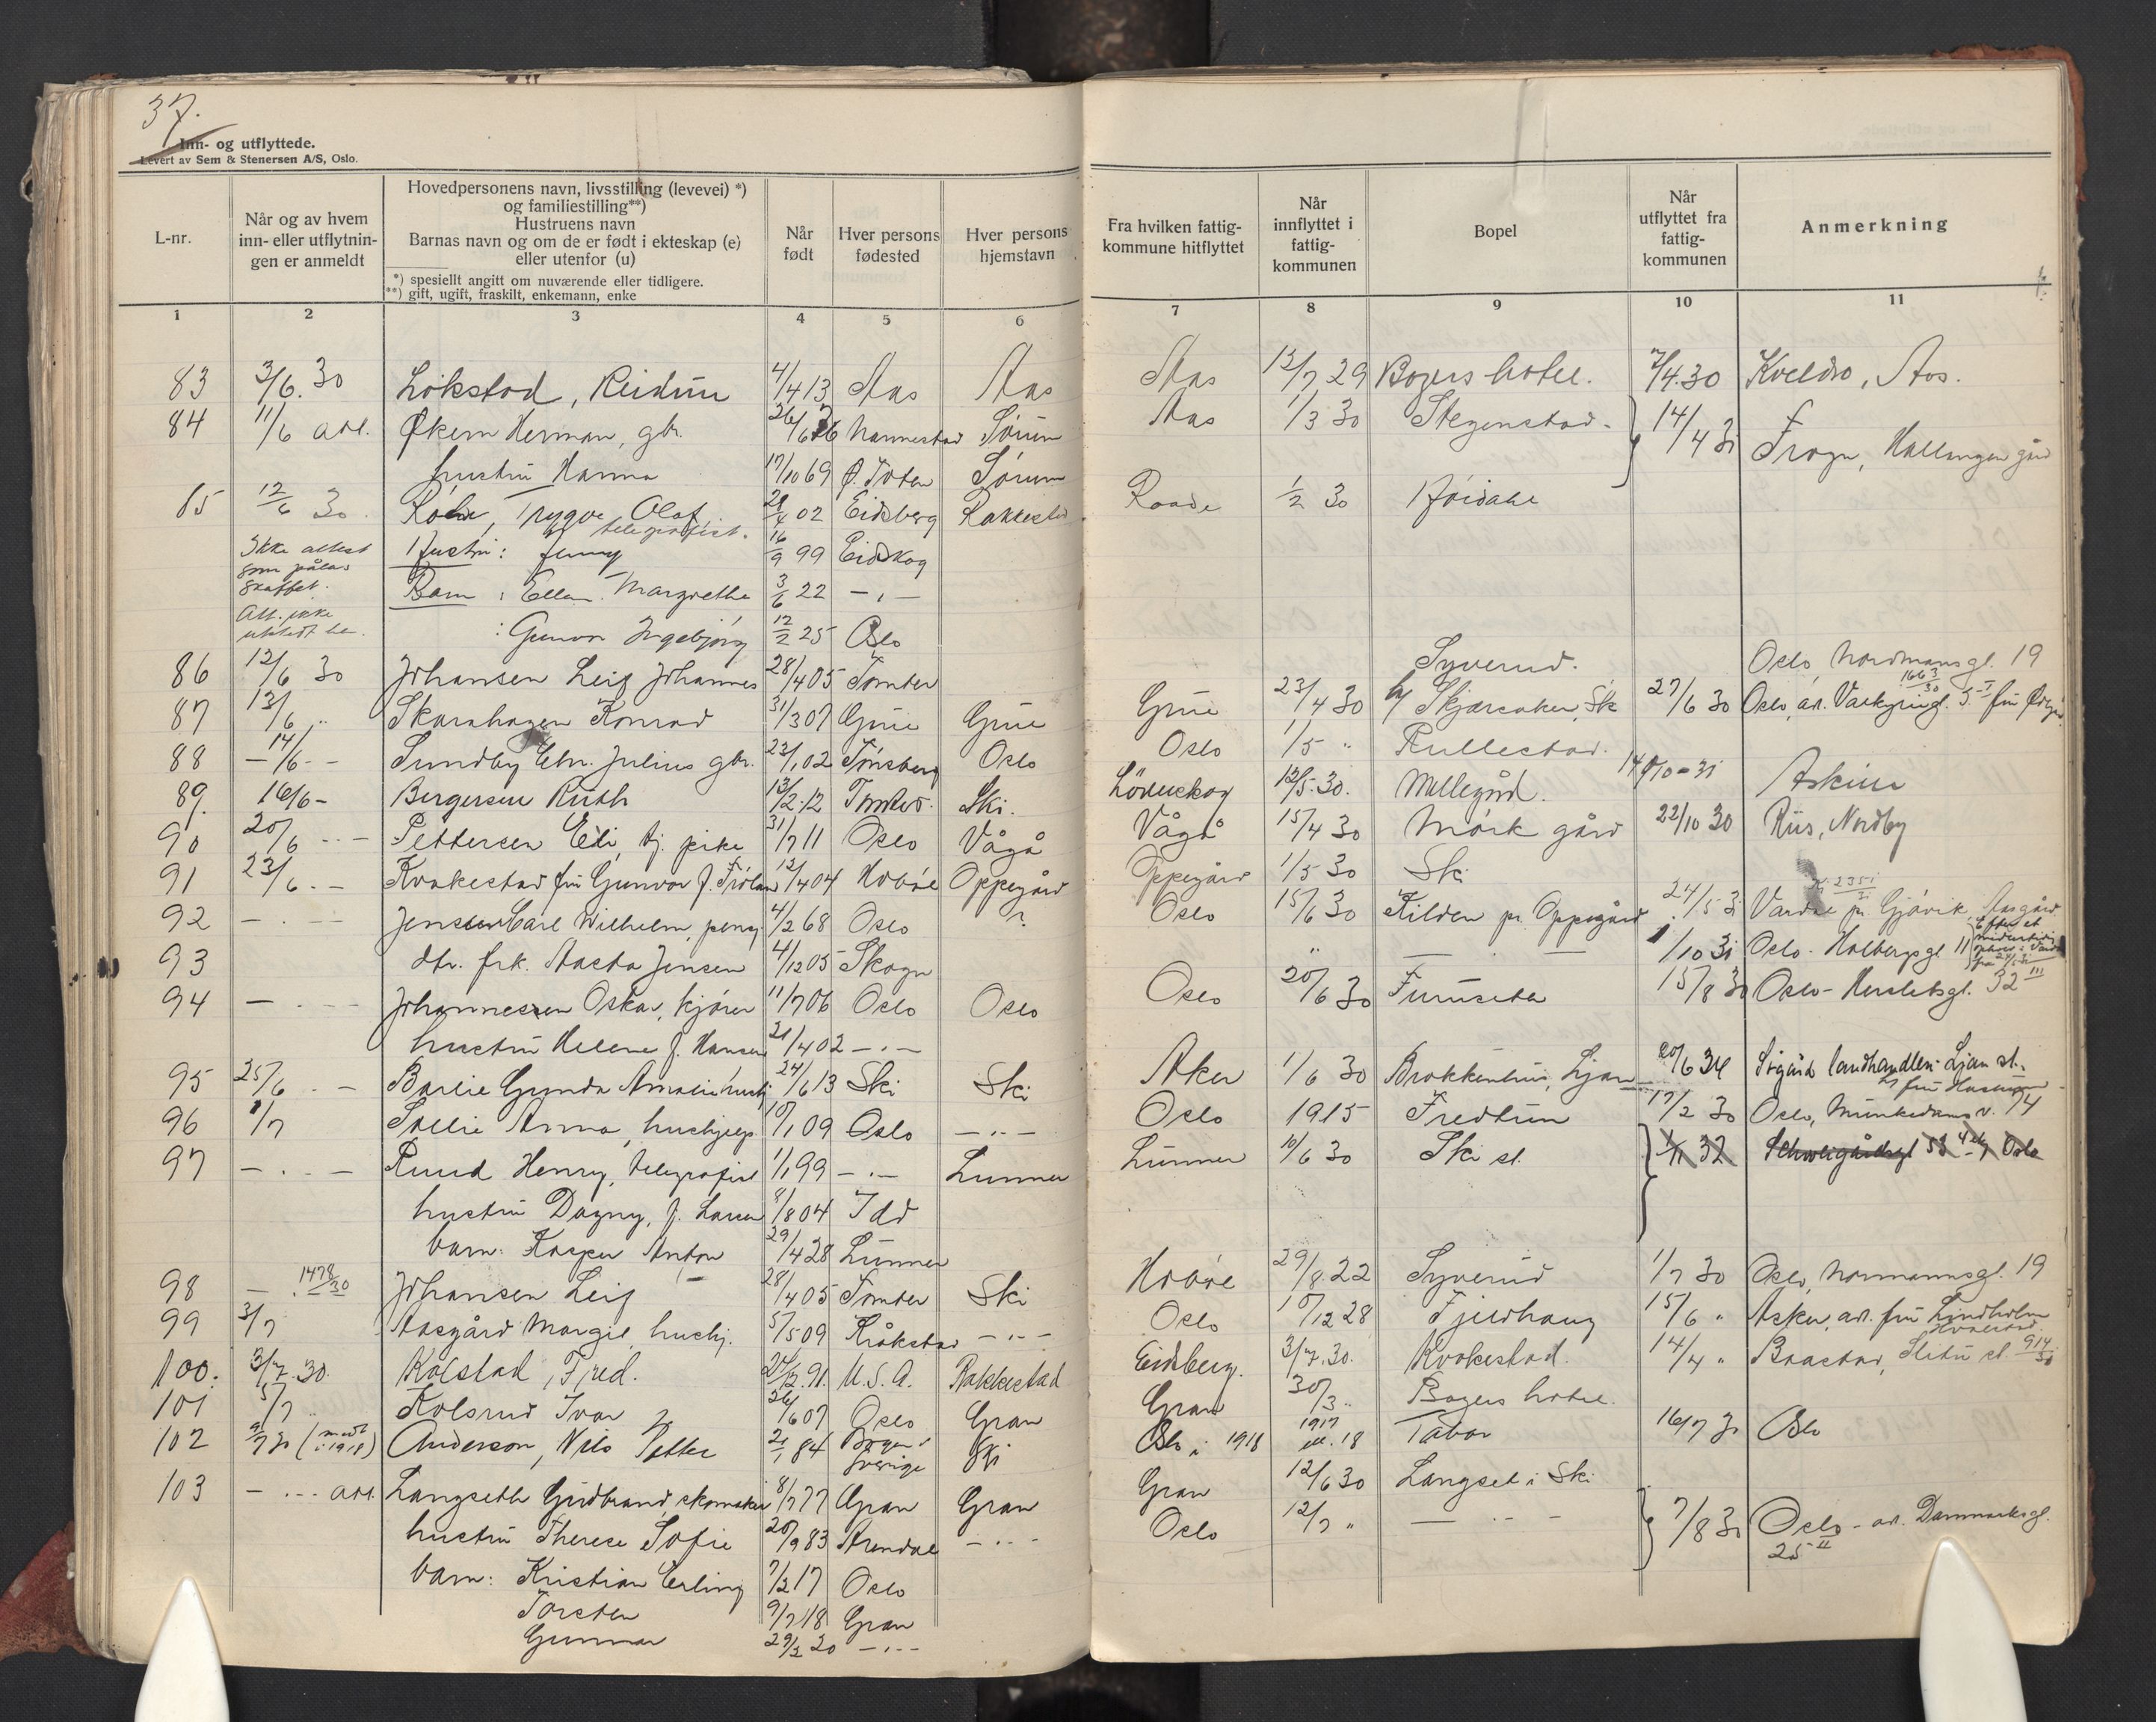 37.
Inn- og utflyttede.
Levert av Sem & Stenersen A/S, Oslo.
L-nr.
Når og av hvem
inn- eller utflytnin-
gen er anmeldt
Hovedpersonens navn, livsstilling (levevei) *)
og familiestilling**)
Hustruens navn
Barnas navn og om de er født i ekteskap (e)
eller utenfor (u)
*) spesiellt angitt om nuværende eller tidligere.
**) gift, ugift, fraskilt, enkemann, enke
Når
født
Hver persons
fødested
Hver persons
hjemstavn
Fra hvilken fattig-
kommune hitflyttet
Når
innflyttet i
fattig-
kommunen
Bopel
Når
utflyttet fra
fattig-
kommunen
Anmerkning
1 2 3 4 5 6 7 8 9 10 11
83 3/6. 30 Lökstad, Reidun 4/4 13 Aas Aas Aas 12/7 29 Bogers hotel. 7/4.30 Kveldro, Aas.
84 11/6 adl. Økern Herman, gbr. 26/6 76 Nannestad Sörum Aas 1/3 30 Stegenstad. 14/4 31 Frogn, Hallangen gård
hustru Hanna 17/10 69 Ø. Toten Sörum
85 12/6 30. Trygve Olaf, telegrafist. 28/4 02 Eidsberg Rakkestad Raade 1/2 30 Höidahl
Ikke attest
som pålas
skaffet.
Hustru: Jenny 16/9 99 Eidskog
Barn: Ellen Margrethe 3/6 22 - " -
Att. ikke
utstedt her.
: Gunvor Ingebjörg 12/2 25 Oslo
86 12/6 30 Johansen Leif Johannes 28/4 05 Tomter Syverud. Oslo, Nordmansgt. 19
1663/30
87 13/6 " Skarahagen Konrad 31/3 07 Grue Grue Grue 23/4 30 b/ Skjærsaker, Sk 27/6 30 Oslo, ad. Valkyriegt. 5 I fru
88 - 14/6 - - Sundby Chr. Julius gbr. 23/1 02 Tönsberg Oslo Oslo 1/5 " Rullestad.
89. 16/6 - Bergersen Ruth 13/2.12 Tomter. Ski. Lörenskog 12/5.30. Mellegård. 14/10-31 Askim
90 20/6 - - - Pettersen Edi, tj. pike 31/7 11 Oslo Vågå Vågå 15/4 30 Mörk gård 22/10 30 Riis, Nordby
91 23/6 - - Kvakestad fru Gunvor f. Fröland 12/4 04 Hobøl Oppegård Oppegård 1/5 30 Ski
92 - . - - Jensen Carl Wilhelm, pens. 4/2 68 Oslo ? Oslo 15/6 30 Kilden pr. Oppegård 24/5 31 Vardal pr Gjövik, Aasgård
93 dtr. frk. Aasta Jensen 4/12 05 Skogn " - . - 1/10 31 Oslo - Holbergsgt 11
94 - . - - - Johannessen Oskar, kjörer 11/7 06 Oslo Oslo Oslo 20/6 30 Furuseth 15/8 30 Oslo - Herslebsgt. 32 III
hustru Helene f. Hansen 21/4 02 - " -
95 25/6 . - Barlie Gunda Amalie hushj 24/6 13 Ski Ski Aker 1/6 30 Brokkenhus, Ljan 20/6 34 Sögård landhandleri Ljan st.
96 1/7 Sollie Anna, hushjelp 10/1 09 Oslo - " - Oslo 1915 Fredtun 17/2 30 Oslo, Munkedamsv. 74
97 - . - - Ruud Henry, telegrafist 1/1 99 - " - Lunner Lunner 10/6 30 Ski st. 1/11 32 Schweigårdsgt 53 4 etg Oslo
hustru Dagny, f. Larsen 8/8 04 Idd
barn: Kasper Anton 29/4 28 Lunner
98 - . 1478/30 Johansen Leif 28/4 05 Tomter Ski Hobøl 29/8.22 Syverud 1/7 30 Oslo, Normannsgt. 19
99 3/7 Aasgård Margit, hushj. 5/5 09 Kråkstad - " - Oslo 10/12 28 Fjeldhaug 15/6 " Asker, ad. fru Lindholm
Hvalstad.
100. 3/7.30. Kolstad, Fred. 24/12.91. U.S.A. Rakkestad Eidsberg. 3/7.30. Kvakestad. 14/4 " Baastad, Slitu st. 914/30
101 5/7 " Kolsrud Ivar 26/6 07 Oslo Gran Gran 30/3 " Bogers hotel.
102 9/7 30 (medt i 1918) Anderson, Nils Petter 21/1 84 Bogen i Sverige Ski Oslo i 1918 1917 18 Tabor 16/7 31 Oslo
103 - . - - adl. Langseth Gudbrand, skomaker 8/7 77 Gran Gran Gran 12/6 30 Langset i Ski
hustru Therese Sofie 20/9 83 Arendal - " - Oslo 12/7 " - " - - 7/8 31 Oslo - ad. Danmarksgt. 25 II
barn: Kristian Erling 7/2 17 Oslo
Torsten 9/7 18 Gran
Gunnar 29/3 20 - " -